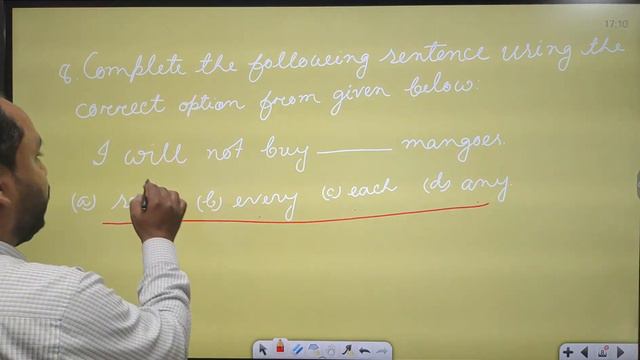 17:10
8. Complete the following sentence using the
correct option from given below:
I will not buy ______ mangoes.
(a) (b) every (c) each (d) any.